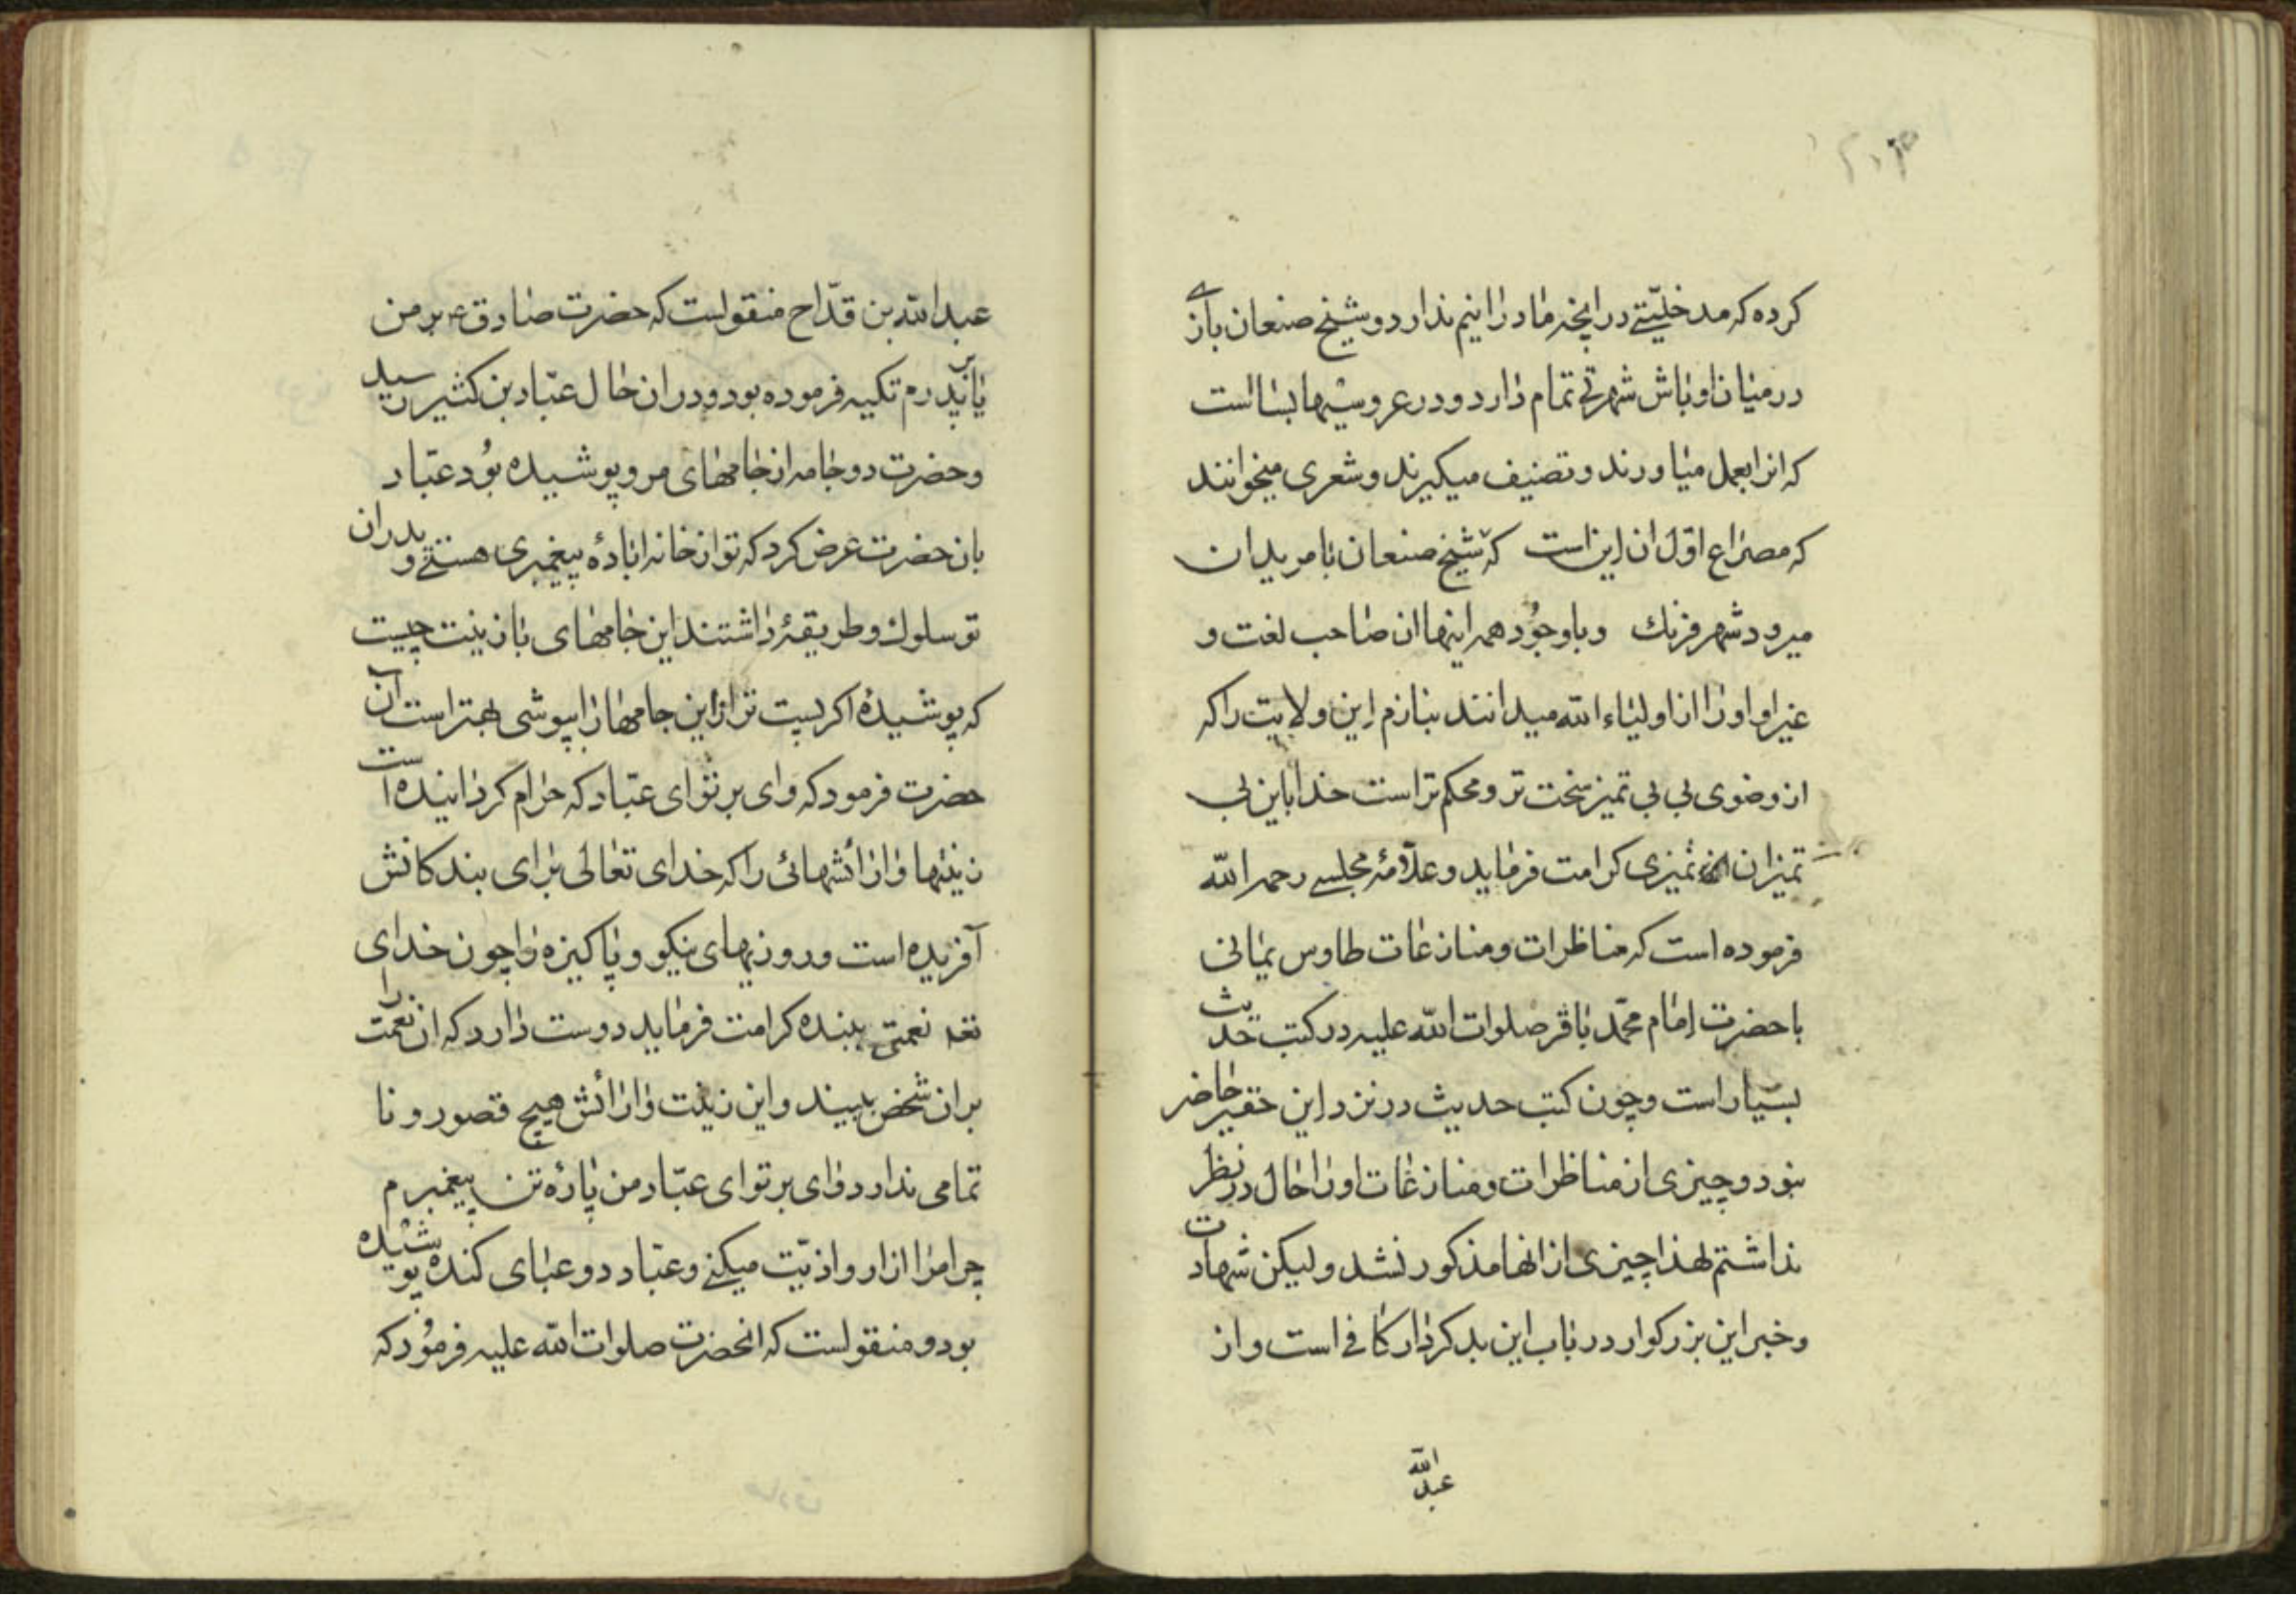 کرده که مدخلیّتے در انچه ما در انیم ندارد و شیخ صنعان بازے
در میان اوباش شهرتے تمام دارد و در عروسیها بسا است
که انرا بعمل میاورند و تصنیف میکیرند و شعری میخوانند
که مصراع اوّل ان این است که شیخ صنعان با مریدان
میرود شهر فرنك و با وجُود همه اینها ان صاحب لغت و
غیر او اورا از اولیاء الله میدانند بنازم این ولایت را که
از وضوی بی بی تمیز سخت تر و محکم تر است خدا باین بی
تمیزان تمیزی کرامت فرماید و علّامهٔ مجلسے رحمه الله
فرموده است که مناظرات و منازعات طاوس یمانی
با حضرت امام محمّد باقر صلوات الله علیه در کتب حدیث
بسیار است و چون کتب حدیث در نزد این حقیر حاضر
نبود و چیزی از مناظرات و منازعات اورا حال در نظر
نداشتم لهذا چیزی از انها مذکور نشد و لیکن شهادت
و خبر این بزرکوار در باب این بدکردار کافی است و از
عبد الله
عبد الله بن قدّاح منقولست که حضرت صادق ع بر من
یا بر پدرم تکیه فرموده بود و در ان حال عبّاد بن کثیر رسید
و حضرت دو جامه از جامهای مرو پوشیده بُود عبّاد
بان حضرت عرض کرد که تو از خانه ابادهٔ پیغمبری هستے و پدران
تو سلوك و طریقهٔ داشتند این جامهای با زینت چیست
که پوشیدهٔ اکر پست تر از این جامها را بپوشی بهتر است آن
حضرت فرمود که وای بر تو ای عبّاد که حرام کردانیده است
زینتها و ارائشهائی را که خدای تعالی برای بندکانش
آفریده است و روزیهای نیکو و پاکیزه را چون خدای
تعه نعمتی ببنده کرامت فرماید دوست دارد که ان نعمت را
بر ان شخص ببیند و این زینت و ارائش هیچ قصور و نا
تمامی ندارد وای بر تو ای عبّاد من پارهٔ تن پیغمبرم
چرا مرا ازار و اذیّت میکنے و عبّاد دو عبای کنده پوشیده
بود و منقولست که انحضرت صلوات الله علیه فرمُود که